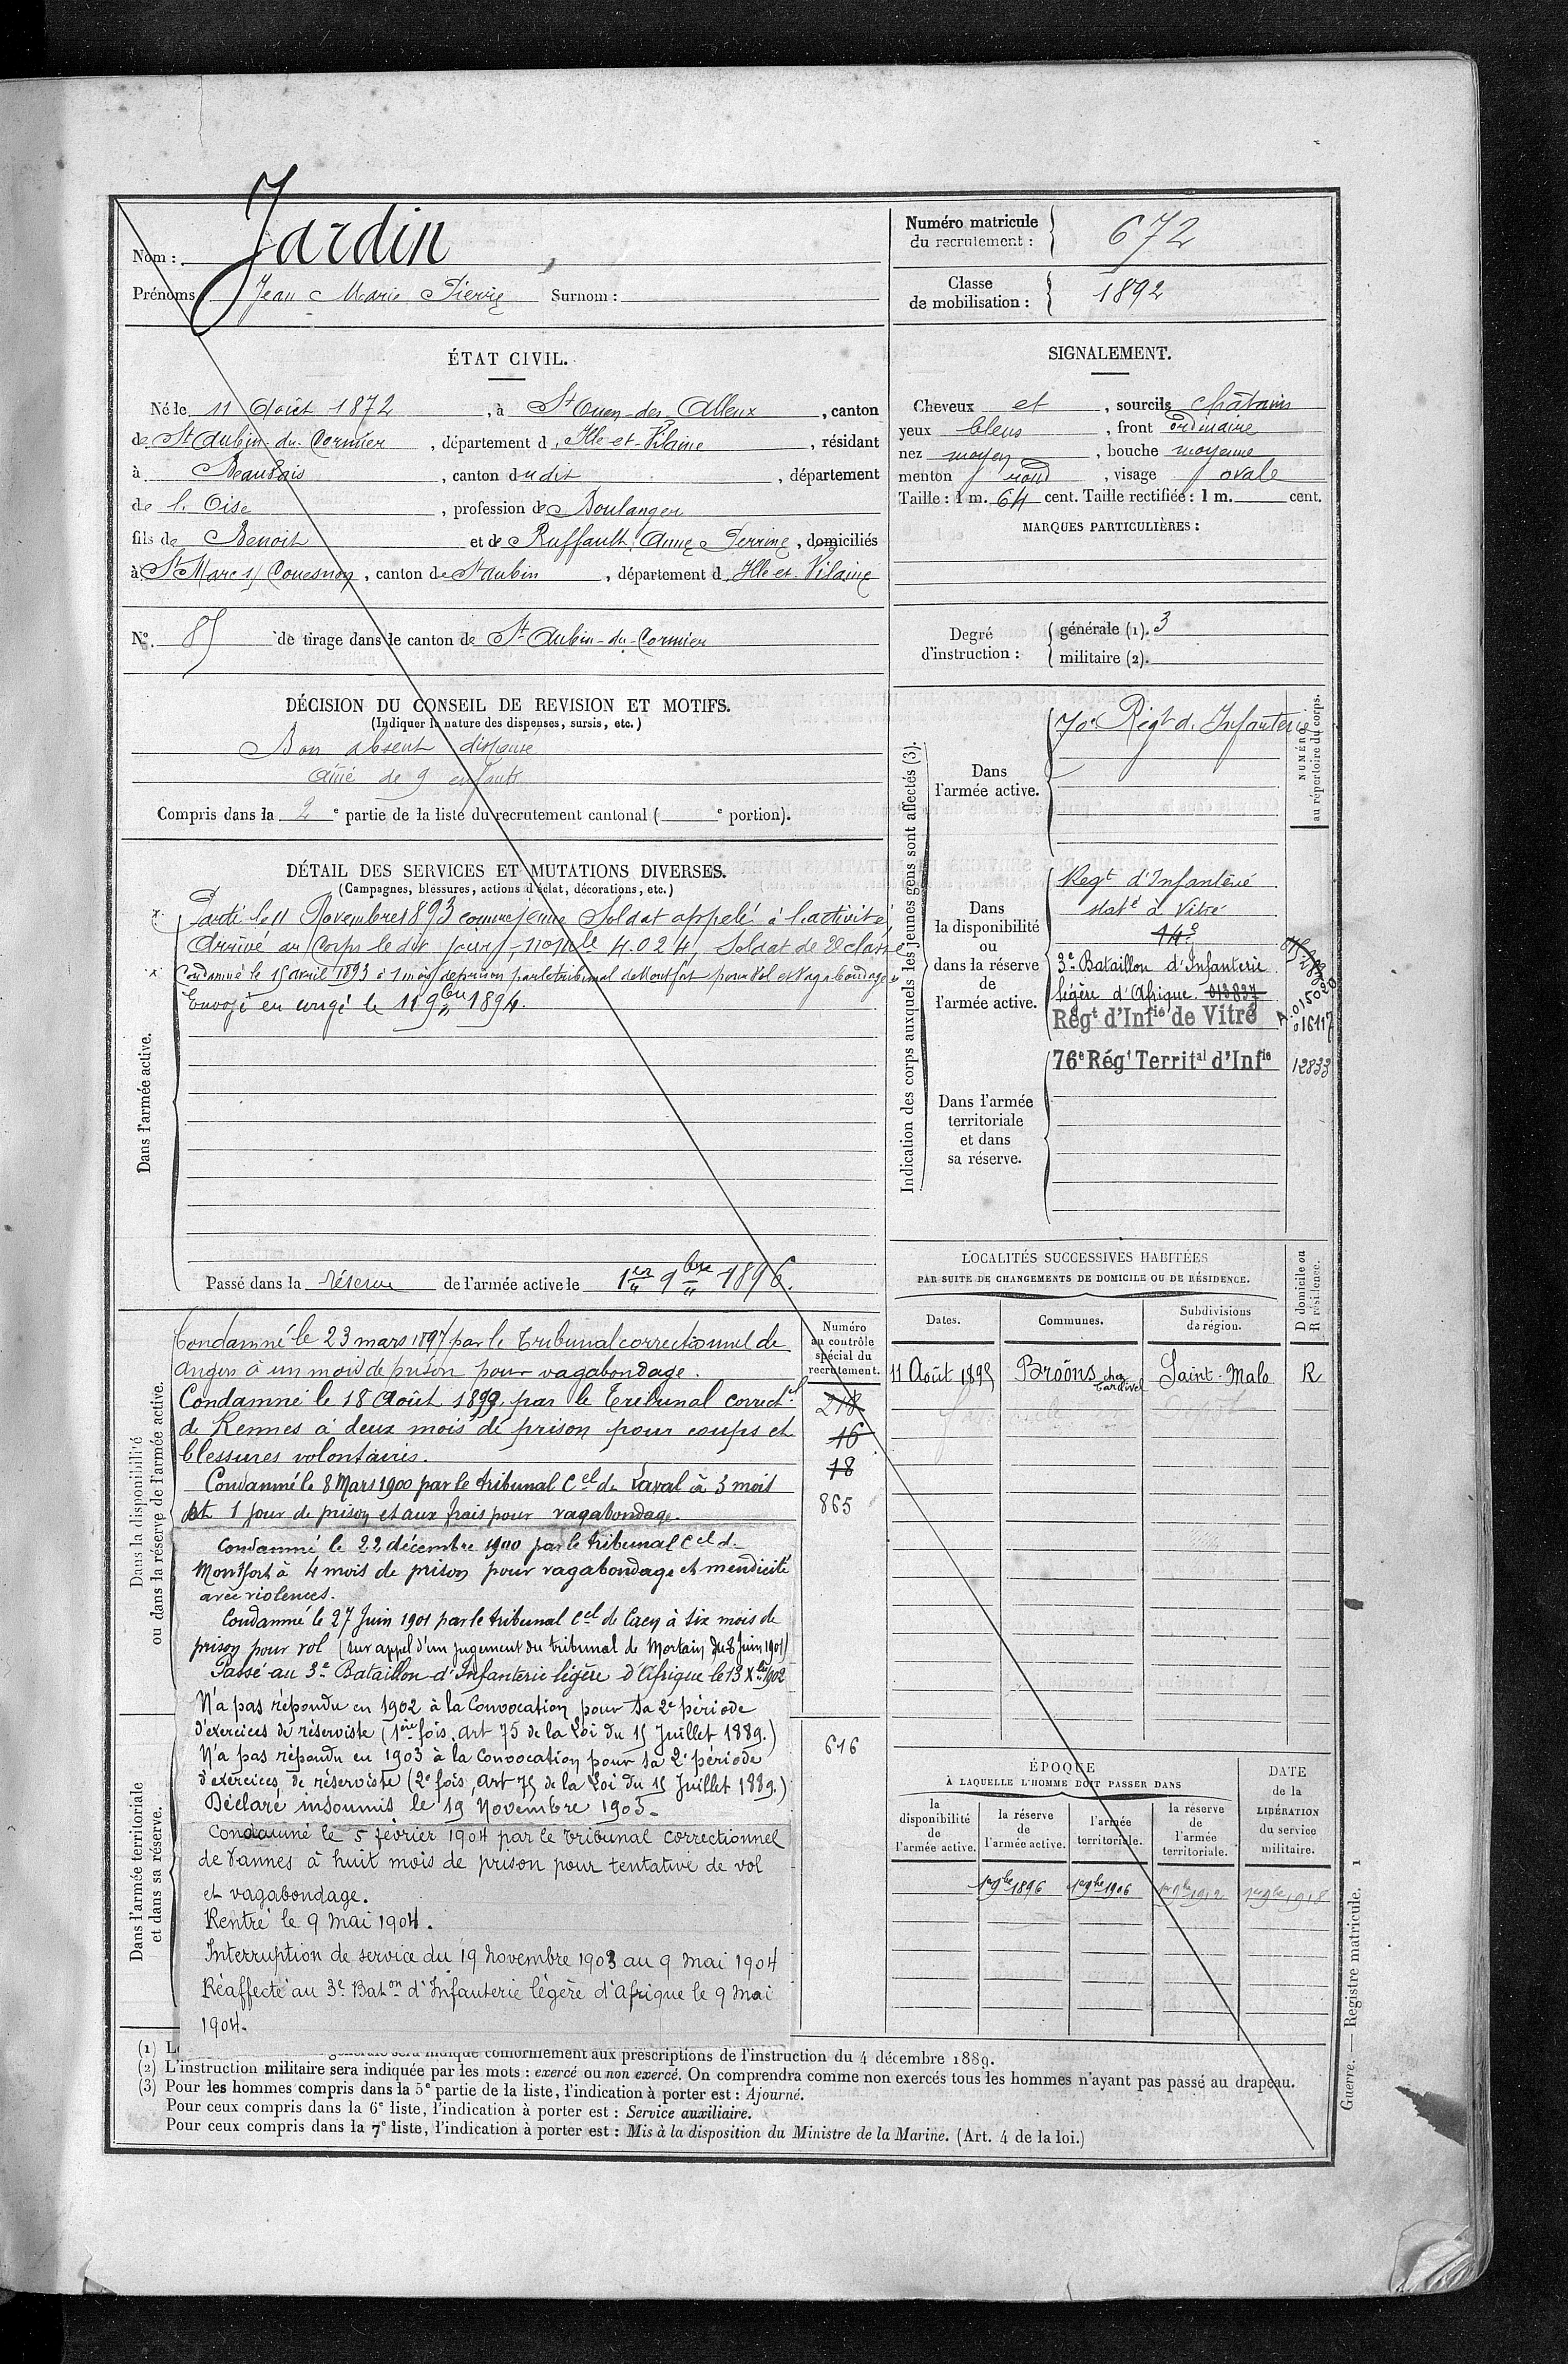 Nom : Jardin
Prénoms Jean Marie Pierre Surnom :
Numéro matricule
du recrutement : 672
Classe
de mobilisation : 1892
ÉTAT CIVIL.
Né le 11 Août 1872, à St Ouen-des-Alleux, canton
de St Aubin-du-Cormier, département d Ille-et-Vilaine, résidant
à Beauvais, canton dudit, département
de l'Oise, profession de Boulanger
fils de Benoit et de Ruffault Anne Perrine, domiciliés
à St Marc s/ Couesnon, canton de St Aubin, département d Ille et Vilaine
SIGNALEMENT.
Cheveux et, sourcils châtains
yeux bleus, front ordinaire
nez moyen, bouche moyenne
menton rond, visage ovale
Taille : 1 m. 64 cent. Taille rectifiée : 1 m. cent.
MARQUES PARTICULIÈRES :
No. 85 de tirage dans le canton de St Aubin-du-Cormier
Degré
d'instruction :
générale (1). 3
militaire (2).
DÉCISION DU CONSEIL DE REVISION ET MOTIFS.
(Indiquer la nature des dispenses, sursis, etc.)
Bon absent dispensé
Aîné de 9 enfants
Compris dans la 2e partie de la liste du recrutement cantonal ( e portion).
DÉTAIL DES SERVICES ET MUTATIONS DIVERSES.
(Campagnes, blessures, actions d'éclat, décorations, etc.)
Dans l'armée active.
Parti le 11 Novembre 1893 comme jeune Soldat appelé à l'activité
Arrivé au Corps le dit jour, non mle 4.024, Soldat de 2e classe
Condamné le 15 avril 1893 à 1 mois de prison par le tribunal de Montfort pour Vol et Vagabondage
Envoyé en congé le 11 9bre 1894.
Passé dans la réserve de l'armée active le 1er 9bre 1896.
Indication des corps auxquels les jeunes gens sont affectés (3).
NUMÉRO
au répertoire du corps.
Dans
l'armée active.
70e Régt d'Infanterie
Dans
la disponibilité
ou
dans la réserve
de
l'armée active.
Regt d'Infanterie
stat é à Vitré
14e
3e Bataillon d'Infanterie
légère d'Afrique. 013837
Régt d'Infie de Vitré
A.015020
016117
Dans l'armée
territoriale
et dans
sa réserve.
76e Régt Territal d'Infie
12833
LOCALITÉS SUCCESSIVES HABITÉES
PAR SUITE DE CHANGEMENTS DE DOMICILE OU DE RÉSIDENCE.
Dates.
Communes.
Subdivisions
de région.
D domicile ou
R résidence.
11 Août 1895 Broöns chez Tardivel Saint-Malo R
Dans la disponibilité
ou dans la réserve de l'armée active.
Condamné le 23 mars 1897 par le Tribunal correctionnel de
Angers à un mois de prison pour vagabondage.
Condamné le 18 Août 1899 par le Tribunal correctel
de Rennes à deux mois de prison pour coups et
blessures volontaires.
Condamné le 8 Mars 1900 par le tribunal Cel de Laval à 3 mois
et 1 jour de prison et aux frais pour vagabondage.
Condamné le 22 décembre 1900 par le tribunal Cel de
Montfort à 4 mois de prison pour vagabondage et mendicité
avec violences.
Condamné le 27 Juin 1901 par le tribunal Cel de Caen à six mois de
prison pour vol (sur appel d'un jugement du tribunal de Mortain du 8 Juin 1901)
Passé au 3e Bataillon d'Infanterie légère d'Afrique le 13 Xbre 1902
Numéro
au contrôle
spécial du
recrutement.
218
16
18
865
Dans l'armée territoriale
et dans sa réserve.
N'a pas répondu en 1902 à la Convocation pour sa 2e période
d'exercices de réserviste (1ère fois, art 75 de la Loi du 15 Juillet 1889.)
N'a pas répondu en 1903 à la convocation pour sa 2e période
d'exercices de réserviste (2e fois, art 75 de la Loi du 15 Juillet 1889.)
Déclaré insoumis le 19 Novembre 1903.
Condamné le 5 février 1904 par le Tribunal correctionnel
de Vannes à huit mois de prison pour tentative de vol
et vagabondage.
Rentré le 9 Mai 1904.
Interruption de service du 19 novembre 1903 au 9 mai 1904
Réaffecté au 3e Baton d'Infanterie légère d'Afrique le 9 mai
1904.
616
ÉPOQUE
À LAQUELLE L'HOMME DOIT PASSER DANS
la
disponibilité
de
l'armée active.
la réserve
de
l'armée active.
l'armée
territoriale.
la réserve
de
l'armée
territoriale.
DATE
de la
LIBÉRATION
du service
militaire.
1er 9bre 1896 1er 9bre 1906 1er 9bre 1912 1er 9bre 1918
(1) L conformément aux prescriptions de l'instruction du 4 décembre 1889.
(2) L'instruction militaire sera indiquée par les mots : exercé ou non exercé. On comprendra comme non exercés tous les hommes n'ayant pas passé au drapeau.
(3) Pour les hommes compris dans la 5e partie de la liste, l'indication à porter est : Ajourné.
Pour ceux compris dans la 6e liste, l'indication à porter est : Service auxiliaire.
Pour ceux compris dans la 7e liste, l'indication à porter est : Mis à la disposition du Ministre de la Marine. (Art. 4 de la loi.)
Guerre. — Registre matricule. 1